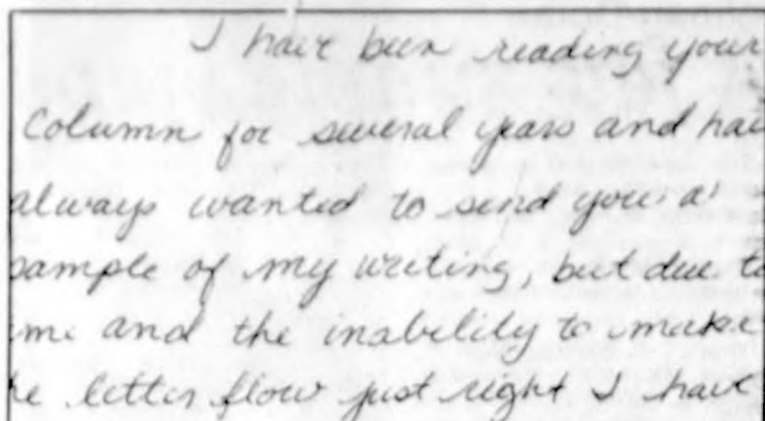 I have been reading your
Column for several years and hav
always wanted to send you a
sample of my writing, but due to
me and the inability to make
he letter flow just right I have